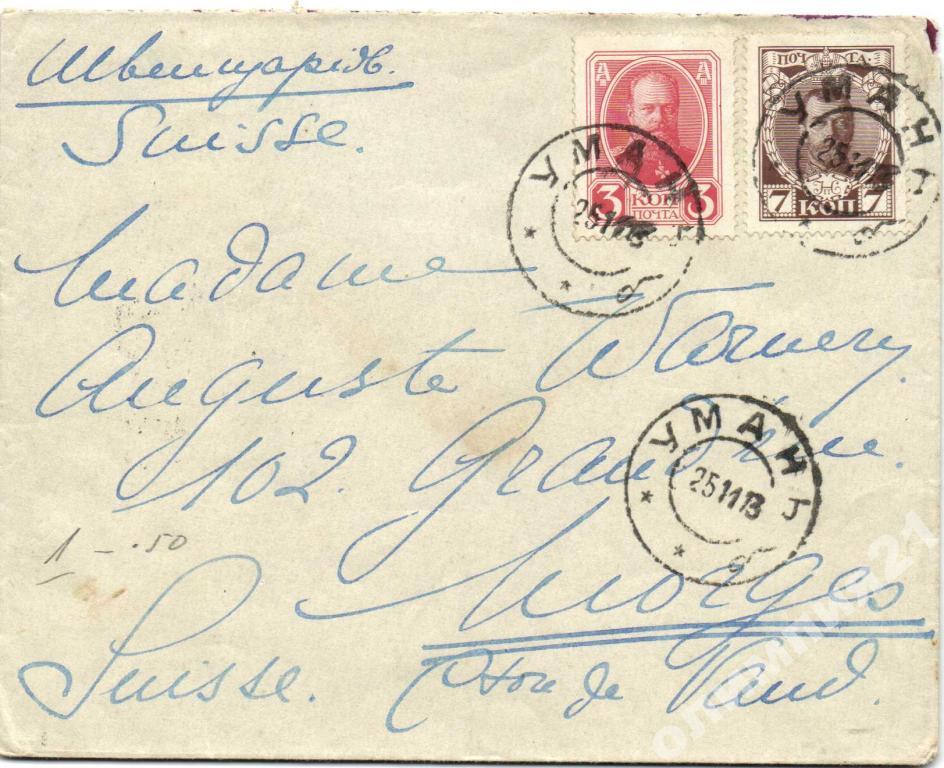 Швейцарія.
Suisse.
3 КОП 3
ПОЧТА
ПОЧТА
7 КОП 7
УМАНЬ
25 11 13
б
УМАНЬ
25 11
б
Madame
Auguste Warnery
102. Grand'rue.
УМАНЬ
25 11 13
б
1 – .50
Morges
Suisse. Cton de Vaud.
олимпия21